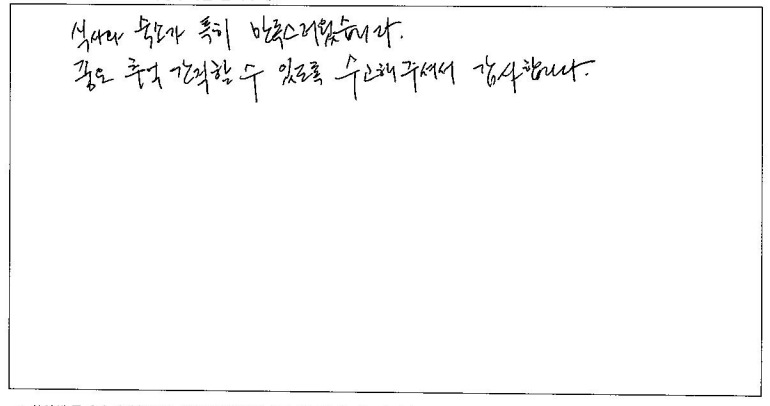 식사와 숙소가 특히 만족스러웠습니다.
좋은 추억 간직할 수 있도록 수고해주셔서 감사합니다.